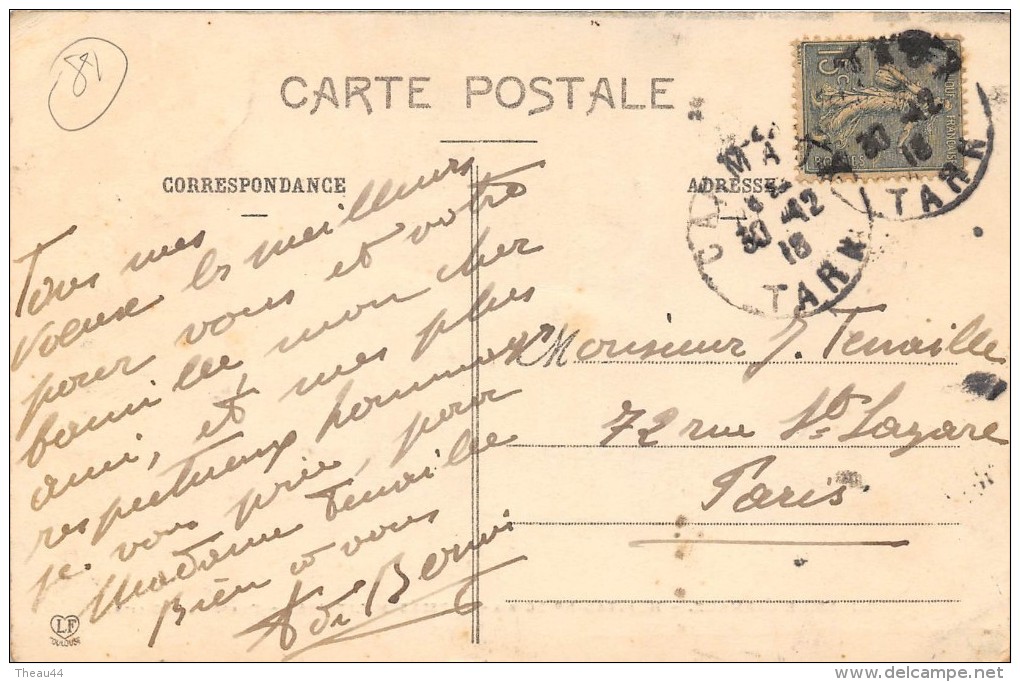 81
CARTE POSTALE
CORRESPONDANCE
ADRESSE
Tous mes
voeux les meilleurs
pour vous et votre
famille mon cher
ami, et mes plus
respectueux hommages
je vous prie, pour
Madame Tenaille
Bien à vous
de
Monsieur J. Tenaille
72 rue St Lazare
Paris
15c
30 12
18
TARN
30 12
18
TARN
LF
TOULOUSE
Theau44
delcampe.net